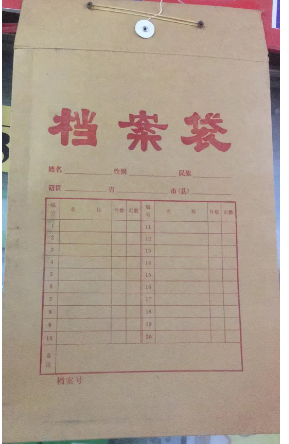 档案袋
姓名 性别 民族
籍贯 省 市(县)
编号 名 称 份数 页数 编号 名 称 份数 页数
1 11
2 12
3 13
4 14
5 15
6 16
7 17
8 18
9 19
10 20
备注
档案号